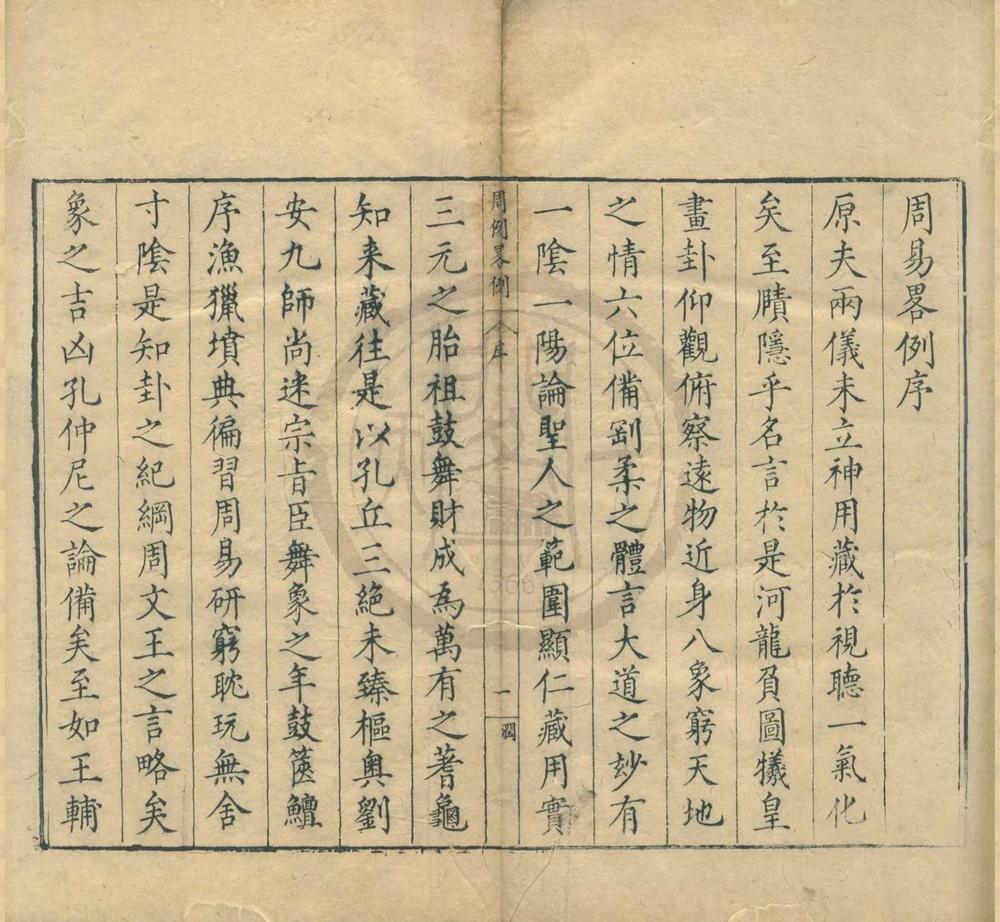 周易畧例序
原夫兩儀未立神用藏於視聽一氣化
矣至賾隱乎名言於是河龍負圖犧皇
畫卦仰觀俯察遠物近身八象窮天地
之情六位備剛柔之體言大道之妙有
一陰一陽論聖人之範圍顯仁藏用實
周例畧例
一
潤
三元之胎祖鼓舞財成為萬有之蓍龜
知来藏往是以孔丘三絶未臻樞奥劉
安九師尚迷宗旨臣舞象之年鼓篋鱣
序漁獵墳典徧習周易研窮耽玩無舍
寸陰是知卦之紀綱周文王之言略矣
象之吉凶孔仲尼之論備矣至如王輔